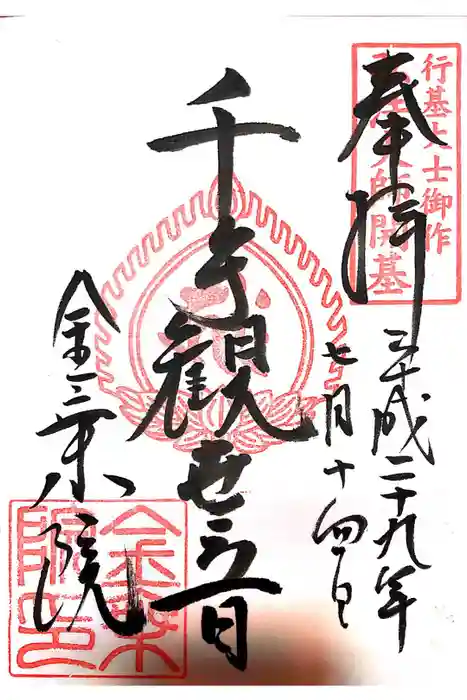 行基大士御作
大師開基
奉拝
平成二十九年
七月十四日
千手観世音
金乗院
金乗院印